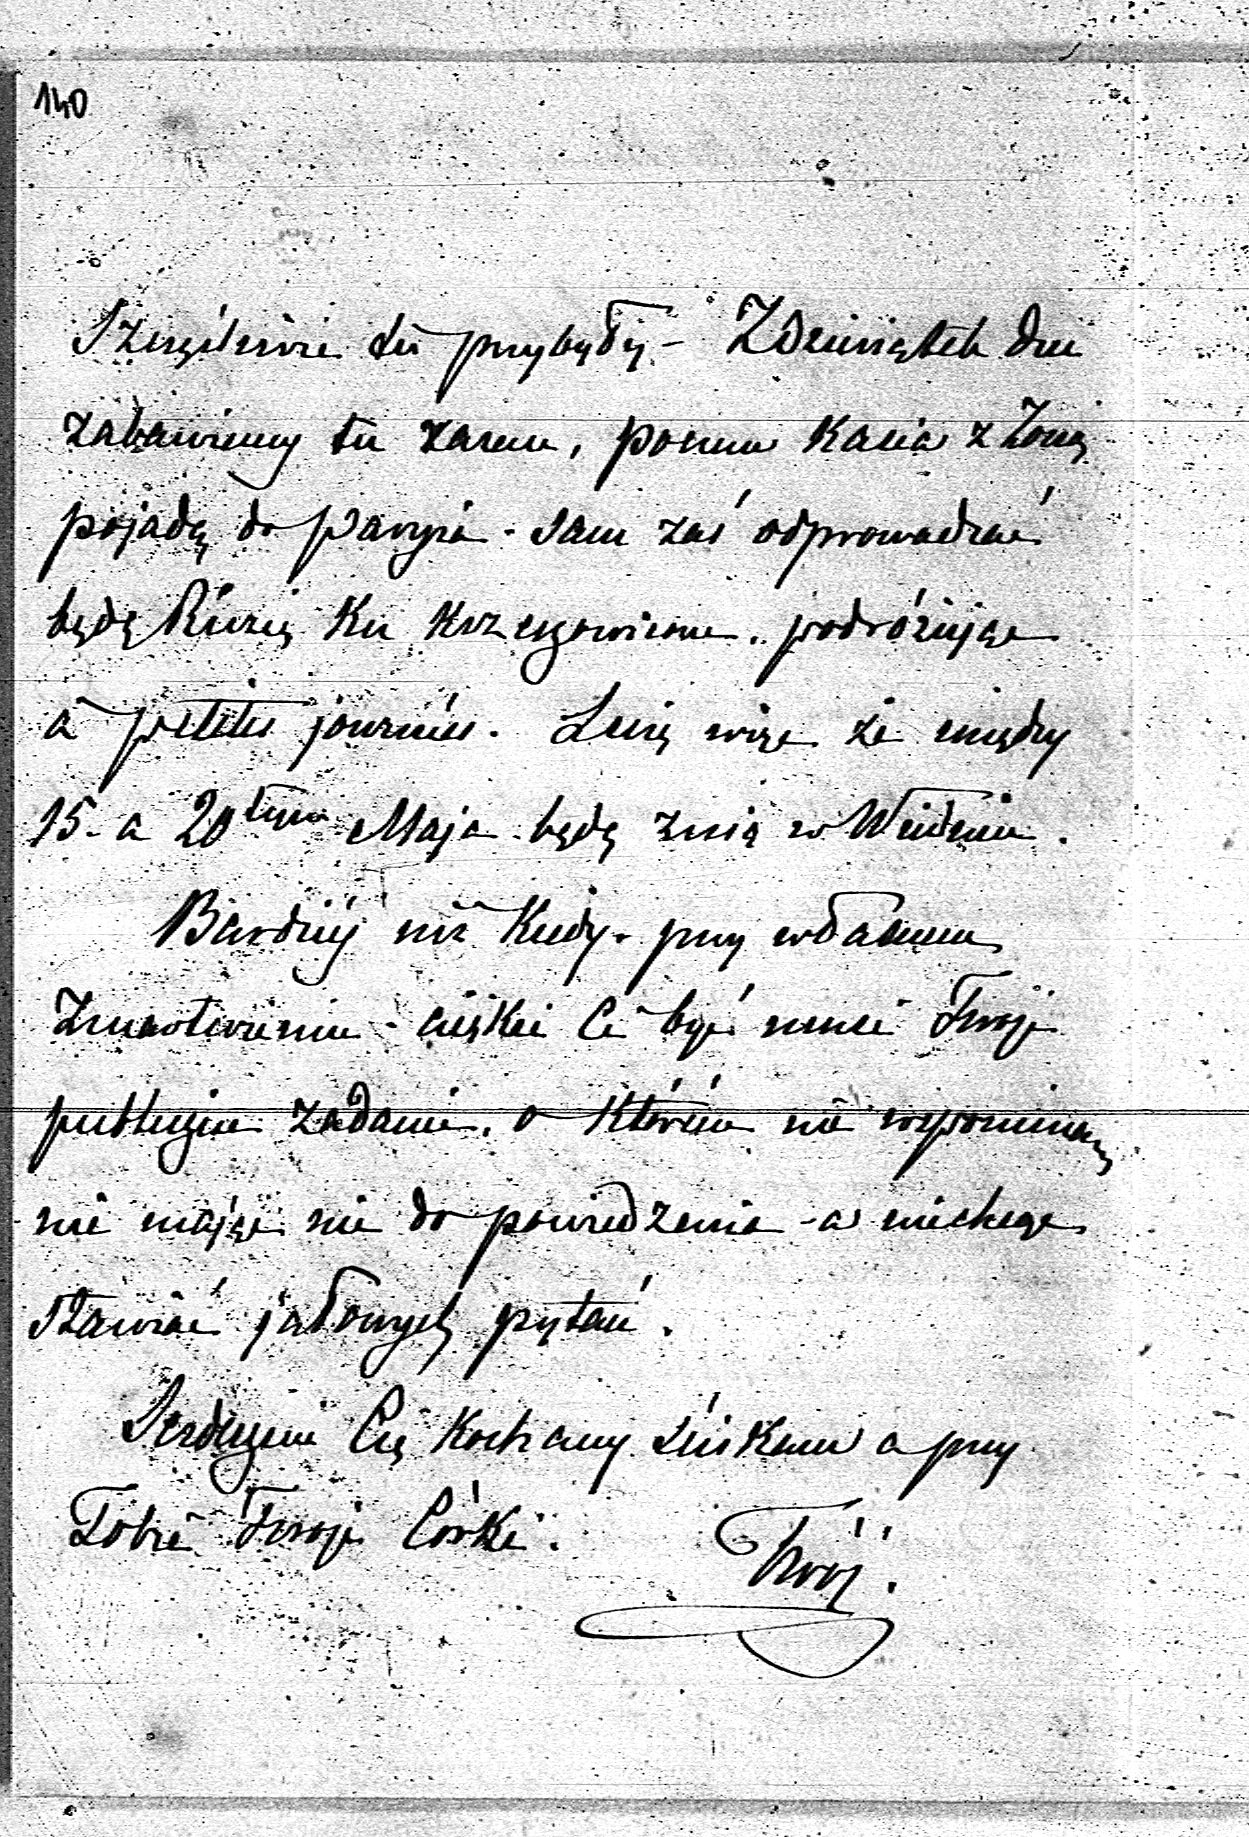 140
Szczęśliwie tu przybyły – Z Dziesiątek dni
zabawimy tu razem, poczem Kasia z Zosią
pojadą do Paryża - sam zaś odprowadzać
będę Różię Ku Krzeszowicom, podróżując
à petites journées. Liczę więc że między
15. a 20tym Maja będę z nią w Wiedniu.
Bardziej niż Kiedy - przy własnem
Zmartwieniu - ciężkie Ci być musi Twoje
publiczne zadanie, o którem nie wspominam
nie mając nic do powiedzenia - a nie chcąc
stawiać jałowych pytań.
Serdecznie Cię Kochany ściskam a przy
Tobie Twoje Córki.
Twój.